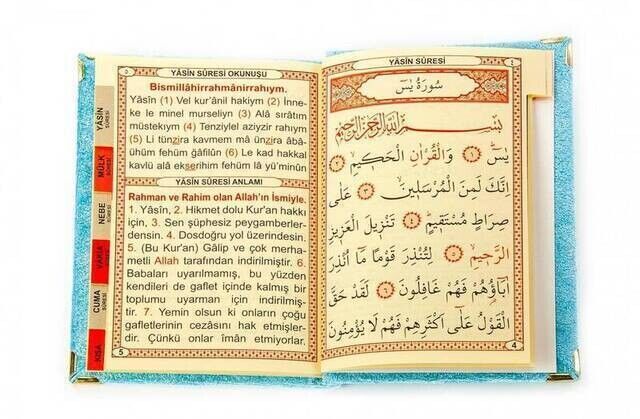 ٥
YÂSÎN SÛRESİ OKUNUŞU
Bismillâhirrahmânirrahıym.
Yâsîn (1) Vel kur'ânil hakiym (2) İnne-
ke le minel murseliyn (3) Alâ sırâtım
müstekıym (4) Tenziylel aziyzir rahıym
(5) Li tünzira kavmem mâ ünzira âbâ-
ühüm fehüm ğâfilûn (6) Le kad hakkal
kavlü alâ ekserihim fehüm lâ yü'minûn
YÂSÎN SÛRESİ ANLAMI
Rahman ve Rahim olan Allah'ın İsmiyle.
1. Yâsîn, 2. Hikmet dolu Kur'an hakkı
için, 3. Sen şüphesiz peygamberler-
densin. 4. Dosdoğru yol üzerindesin.
5. (Bu Kur'an) Gâlip ve çok merha-
metli Allah tarafından indirilmiştir. 6.
Babaları uyarılmamış, bu yüzden
kendileri de gaflet içinde kalmış bir
toplumu uyarman için indirilmiş-
tir. 7. Yemin olsun ki onların çoğu
gafletlerinin cezâsını hak etmişler-
dir. Çünkü onlar îmân etmiyorlar.
5
YÂSÎN SÛRESİ
MÜLK SÛRESİ
NEBE SÛRESİ
VÂKIA SÛRESİ
CUMA SÛRESİ
KISA
YÂSÎN SÛRESİ
٤
سُورَةُ يٰسٓ
بِسْمِ اللّٰهِ الرَّحْمٰنِ الرَّحِيمِ
يٰسٓ ﴿١﴾ وَالْقُرْاٰنِ الْحَكِيمِ ﴿٢﴾
اِنَّكَ لَمِنَ الْمُرْسَلِينَ ﴿٣﴾ عَلٰى
صِرَاطٍ مُسْتَقِيمٍ ﴿٤﴾ تَنْزِيلَ الْعَزِيزِ
الرَّحِيمِ ﴿٥﴾ لِتُنْذِرَ قَوْمًا مَٓا اُنْذِرَ
اٰبَٓاؤُهُمْ فَهُمْ غَافِلُونَ ﴿٦﴾ لَقَدْ حَقَّ
الْقَوْلُ عَلٰٓى اَكْثَرِهِمْ فَهُمْ لَا يُؤْمِنُونَ
4